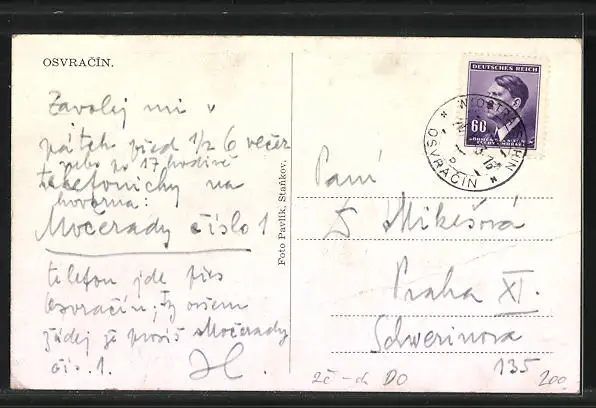 OSVRAČÍN.
Zavolej mi v
pátek před 1/2 6 večer
nebo po 17 hodině
telefonicky na
hovorna:
Močerady číslo 1
telefon jde přes
Osvračín, Ty ovšem
žádej že prosíš Močerady
čís. 1.
Foto Pavlík, Staňkov.
DEUTSCHES REICH
60
OSVRAČÍN
Paní
Mikešová
Praha XI.
Schwerinova
135
2č - ch DO
200